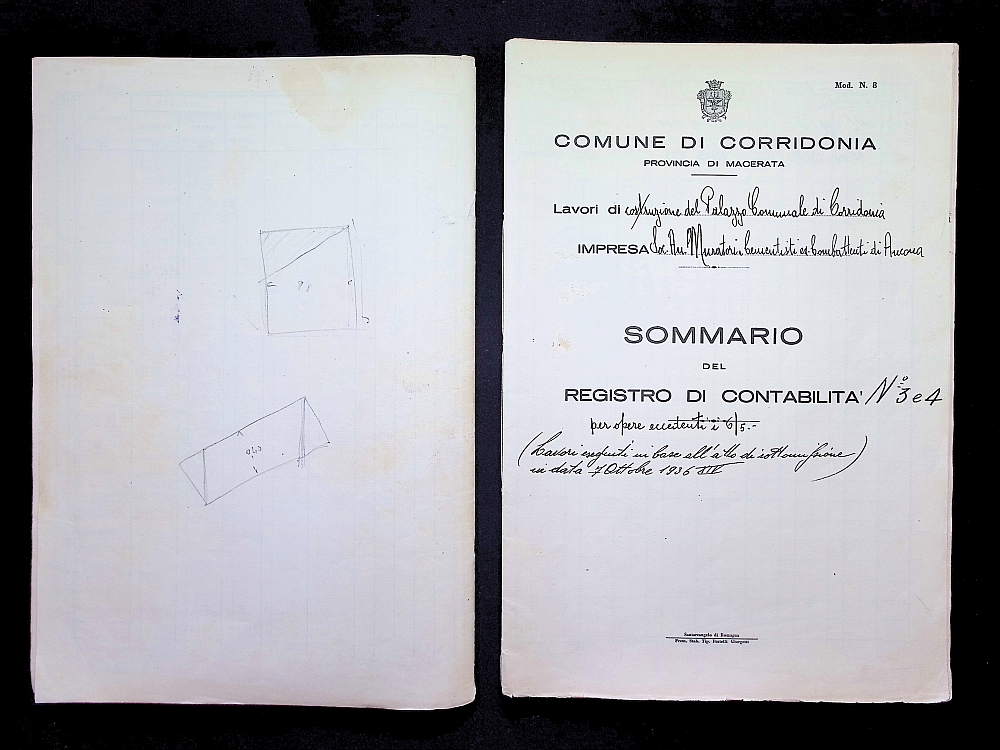 0,40
Mod. N. 8
COMUNE DI CORRIDONIA
PROVINCIA DI MACERATA
Lavori di costruzione del Palazzo Comunale di Corridonia
IMPRESA Soc. An. Muratori, Cementisti ex-Combattenti di Ancona
SOMMARIO
DEL
REGISTRO DI CONTABILITA' N.° 3 e 4
per opere eccedenti i 6/5.-
(Lavori eseguiti in base all'atto di sottomissione)
in data 7 Ottobre 1936 XIV
Santarcangelo di Romagna
Prem. Stab. Tip. Fratelli Giorgetti